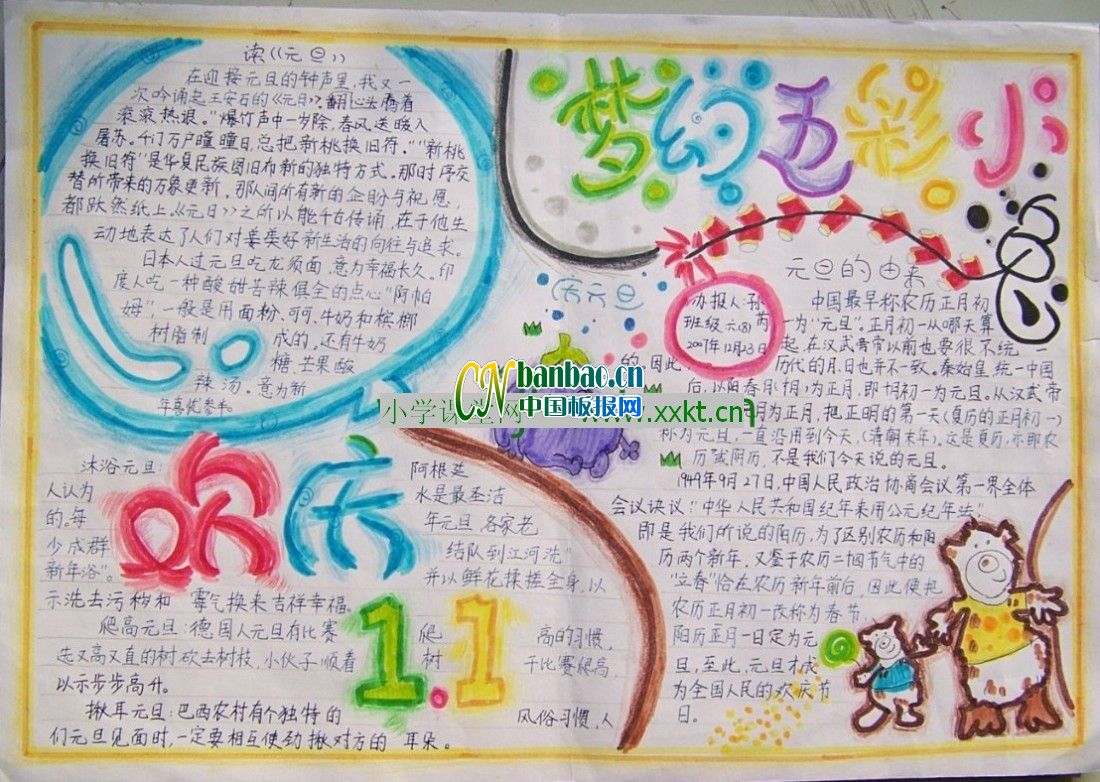 读《元旦》
在迎接元旦的钟声里,我又一
次吟诵起王安石的《元旦》,翻心头腾着
滚滚热浪。"爆竹声中一岁除,春风送暖入
屠苏。千门万户曈曈日,总把新桃换旧符。""新桃
换旧符"是华夏民族图旧布新的独特方式。那时序交
替所带来的万象更新,那人间所有新的企盼与祝愿,
都跃然纸上。《元旦》之所以能千古传诵,在于他生
动地表达了人们对美好新生活的向往与追求。
日本人过元旦吃龙须面,意为幸福长久。印
度人吃一种酸甜苦辣俱全的点心"阿帕
姆",一般是用面粉、可可、牛奶和槟榔
树脂制成的。还有牛奶
糖、芒果酸
辣汤。意为新
梦幻五彩小
庆元旦
办报人:孙芮
班级六(8)
2007年12月23日
元旦的由来
中国最早称农历正月初
一为"元旦"。正月初一从哪天算
起,在汉武帝以前也要很不统一
的,因此,历代的月、日也并不一致。秦始皇统一中国
后,以阳春月(十月)为正月,即十月初一为元旦。从汉武帝
月为正月,把正明的第一天(夏历的正月初一)
称为元旦,一直沿用到今天,(清朝末年)。这是夏历,亦即农
历或阴历,不是我们今天说的元旦。
1949年9月27日,中国人民政治协商会议第一界全体
会议诀议:"中华人民共和国纪年采用公元纪年法"。
即是我们所说的阳历,为了区别农历和阳
历两个新年,又鉴于农历二十四节气中的
"立春"恰在农历新年前后,因此便把
农历正月初一改称为春节,
阳历正月一日定为元
旦,至此,元旦才成
为全国人民的欢庆节
日。
CN banbao.cn
中国板报网
小学课堂网 www.xxkt.cn
欢庆
1.1
沐浴元旦:阿根廷
人认为水是最圣洁
的。每年元旦各家老
少成群结队到江河洗"
新年浴"。并以鲜花揉搓全身,以
示洗去污秽和霉气换来吉祥幸福。
爬高元旦:德国人元旦有比赛爬高的习惯,
选又高又直的树砍去树枝,小伙子顺着树干比赛爬高,
以示步步高升。
揪耳元旦:巴西农村有个独特的风俗习惯,人
们元旦见面时,一定要相互使劲揪对方的耳朵。